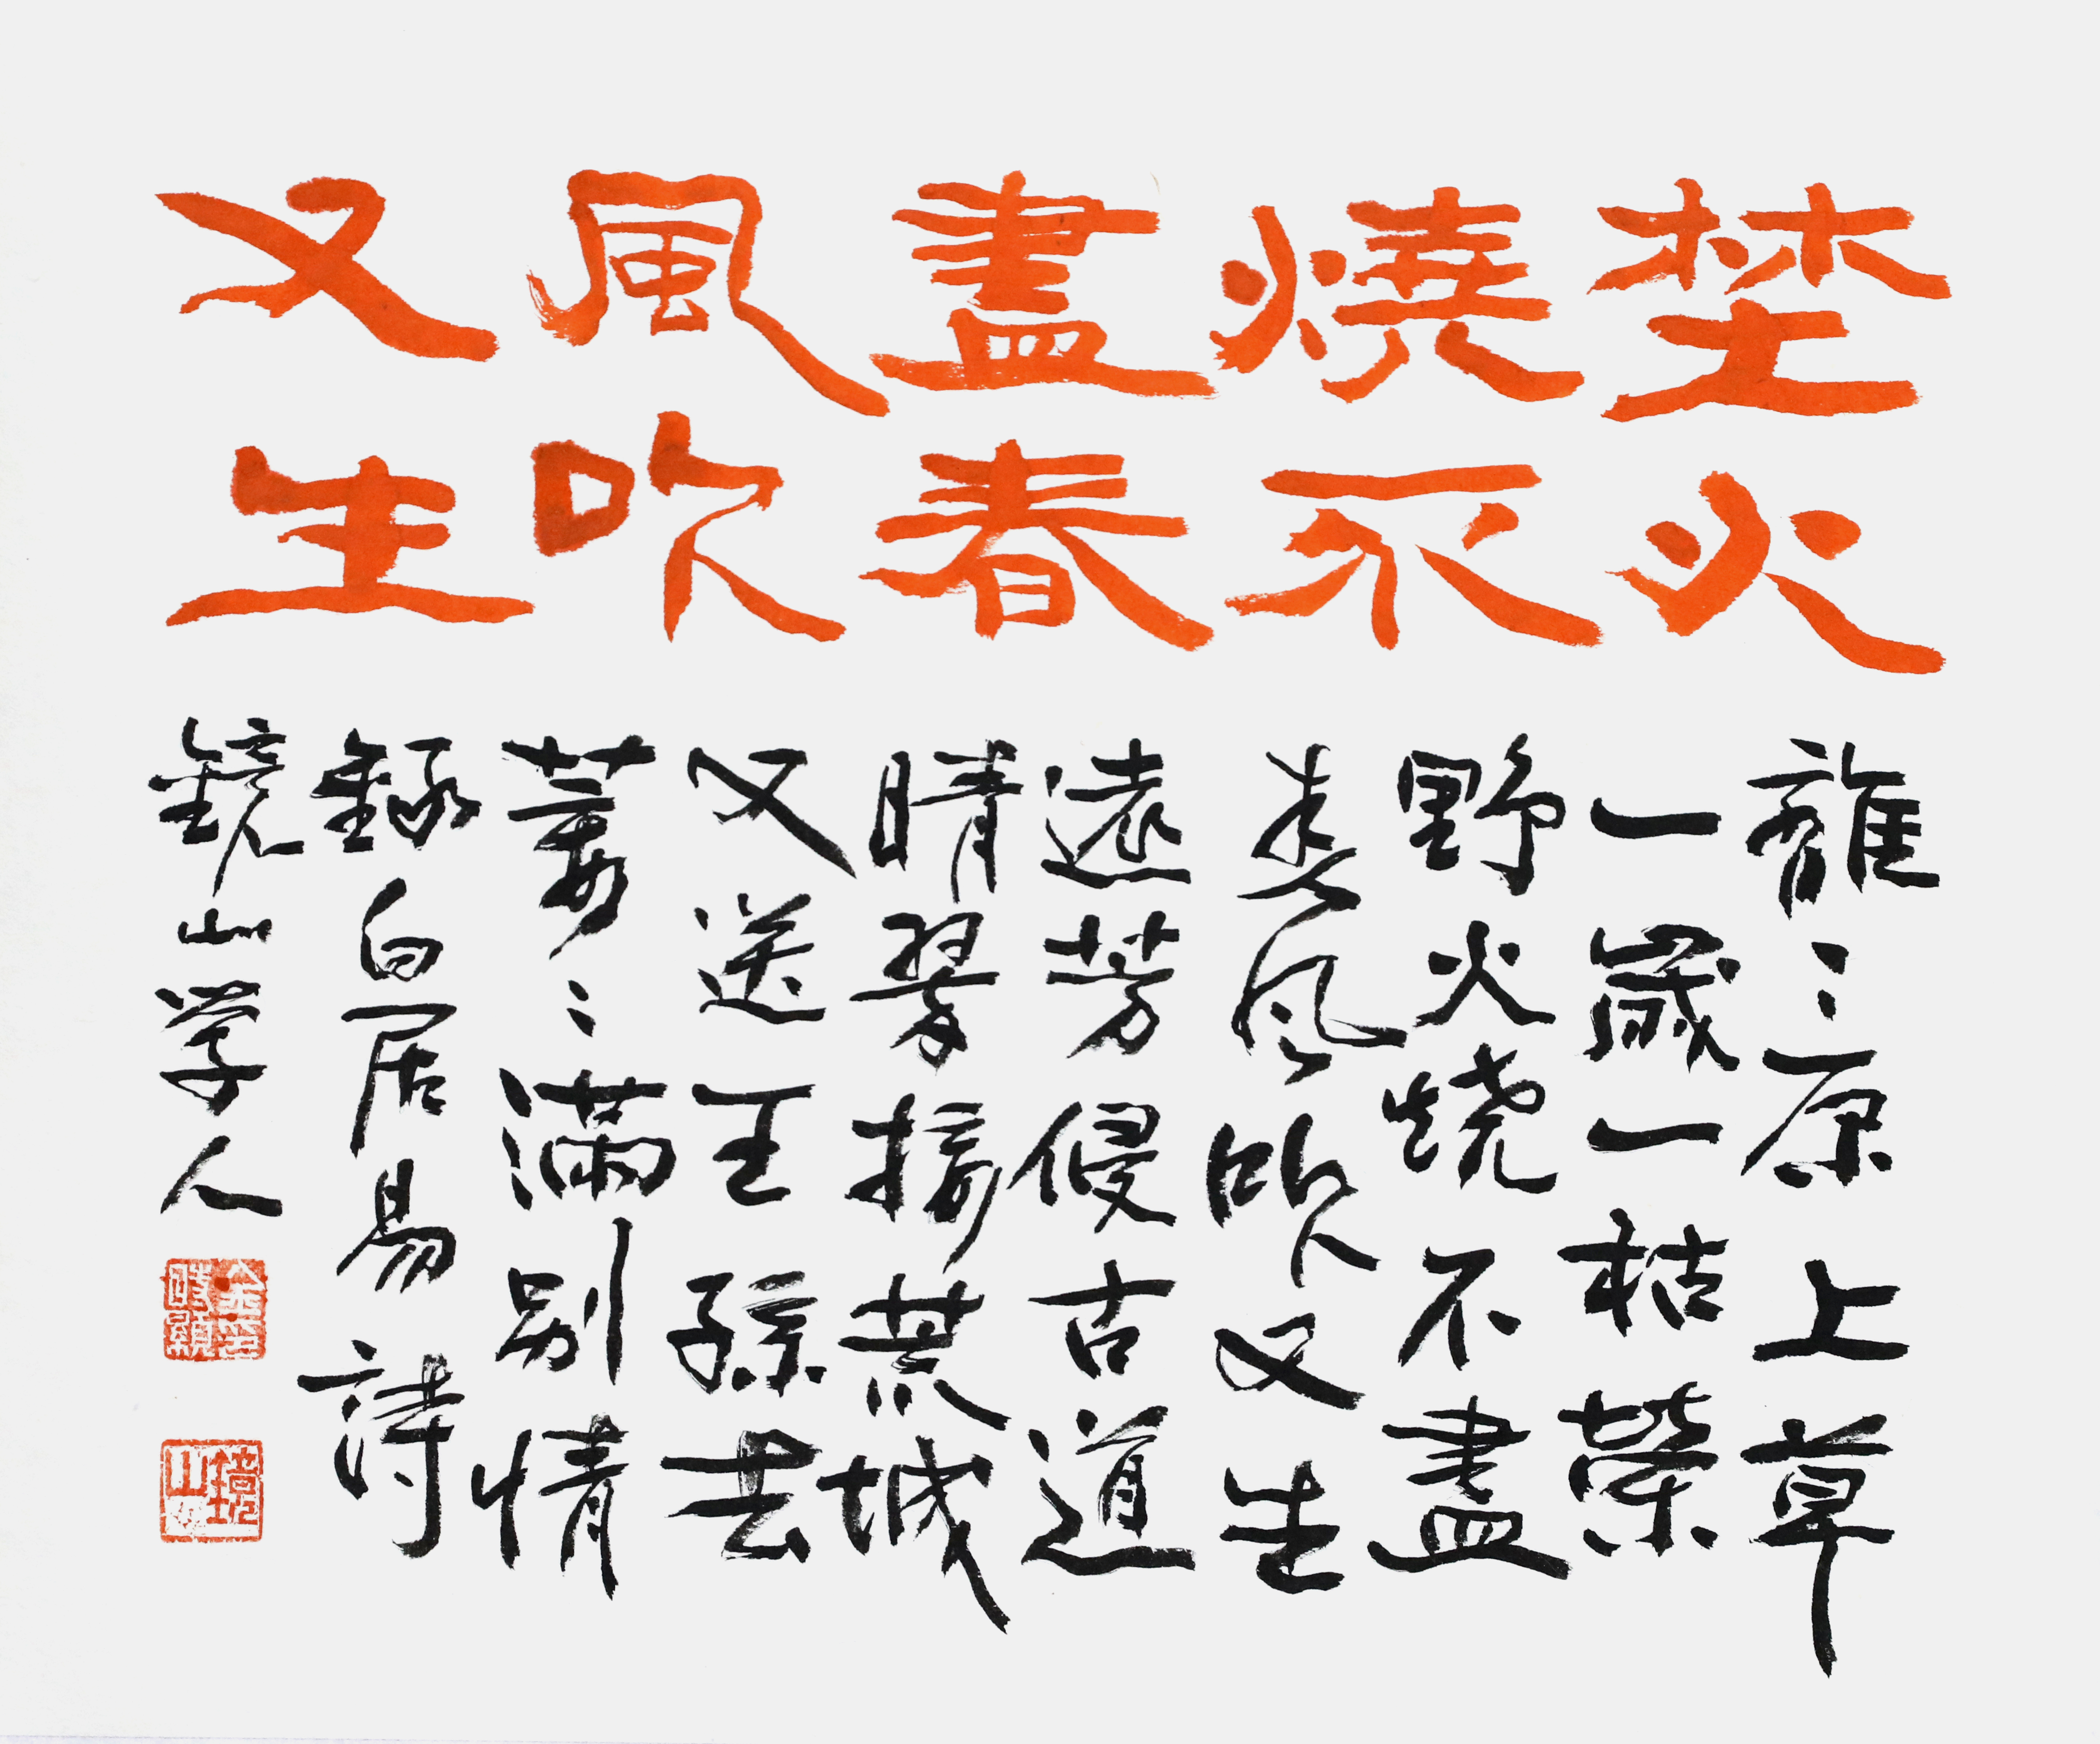 埜火
燒不
盡春
風吹
又生
離〻原上草
一歲一枯榮
野火烧不盡
春风吹又生
遠芳侵古道
晴翠接荒城
又送王孫去
萋〻滿别情
録白居易詩
鏡山学人
鏡山